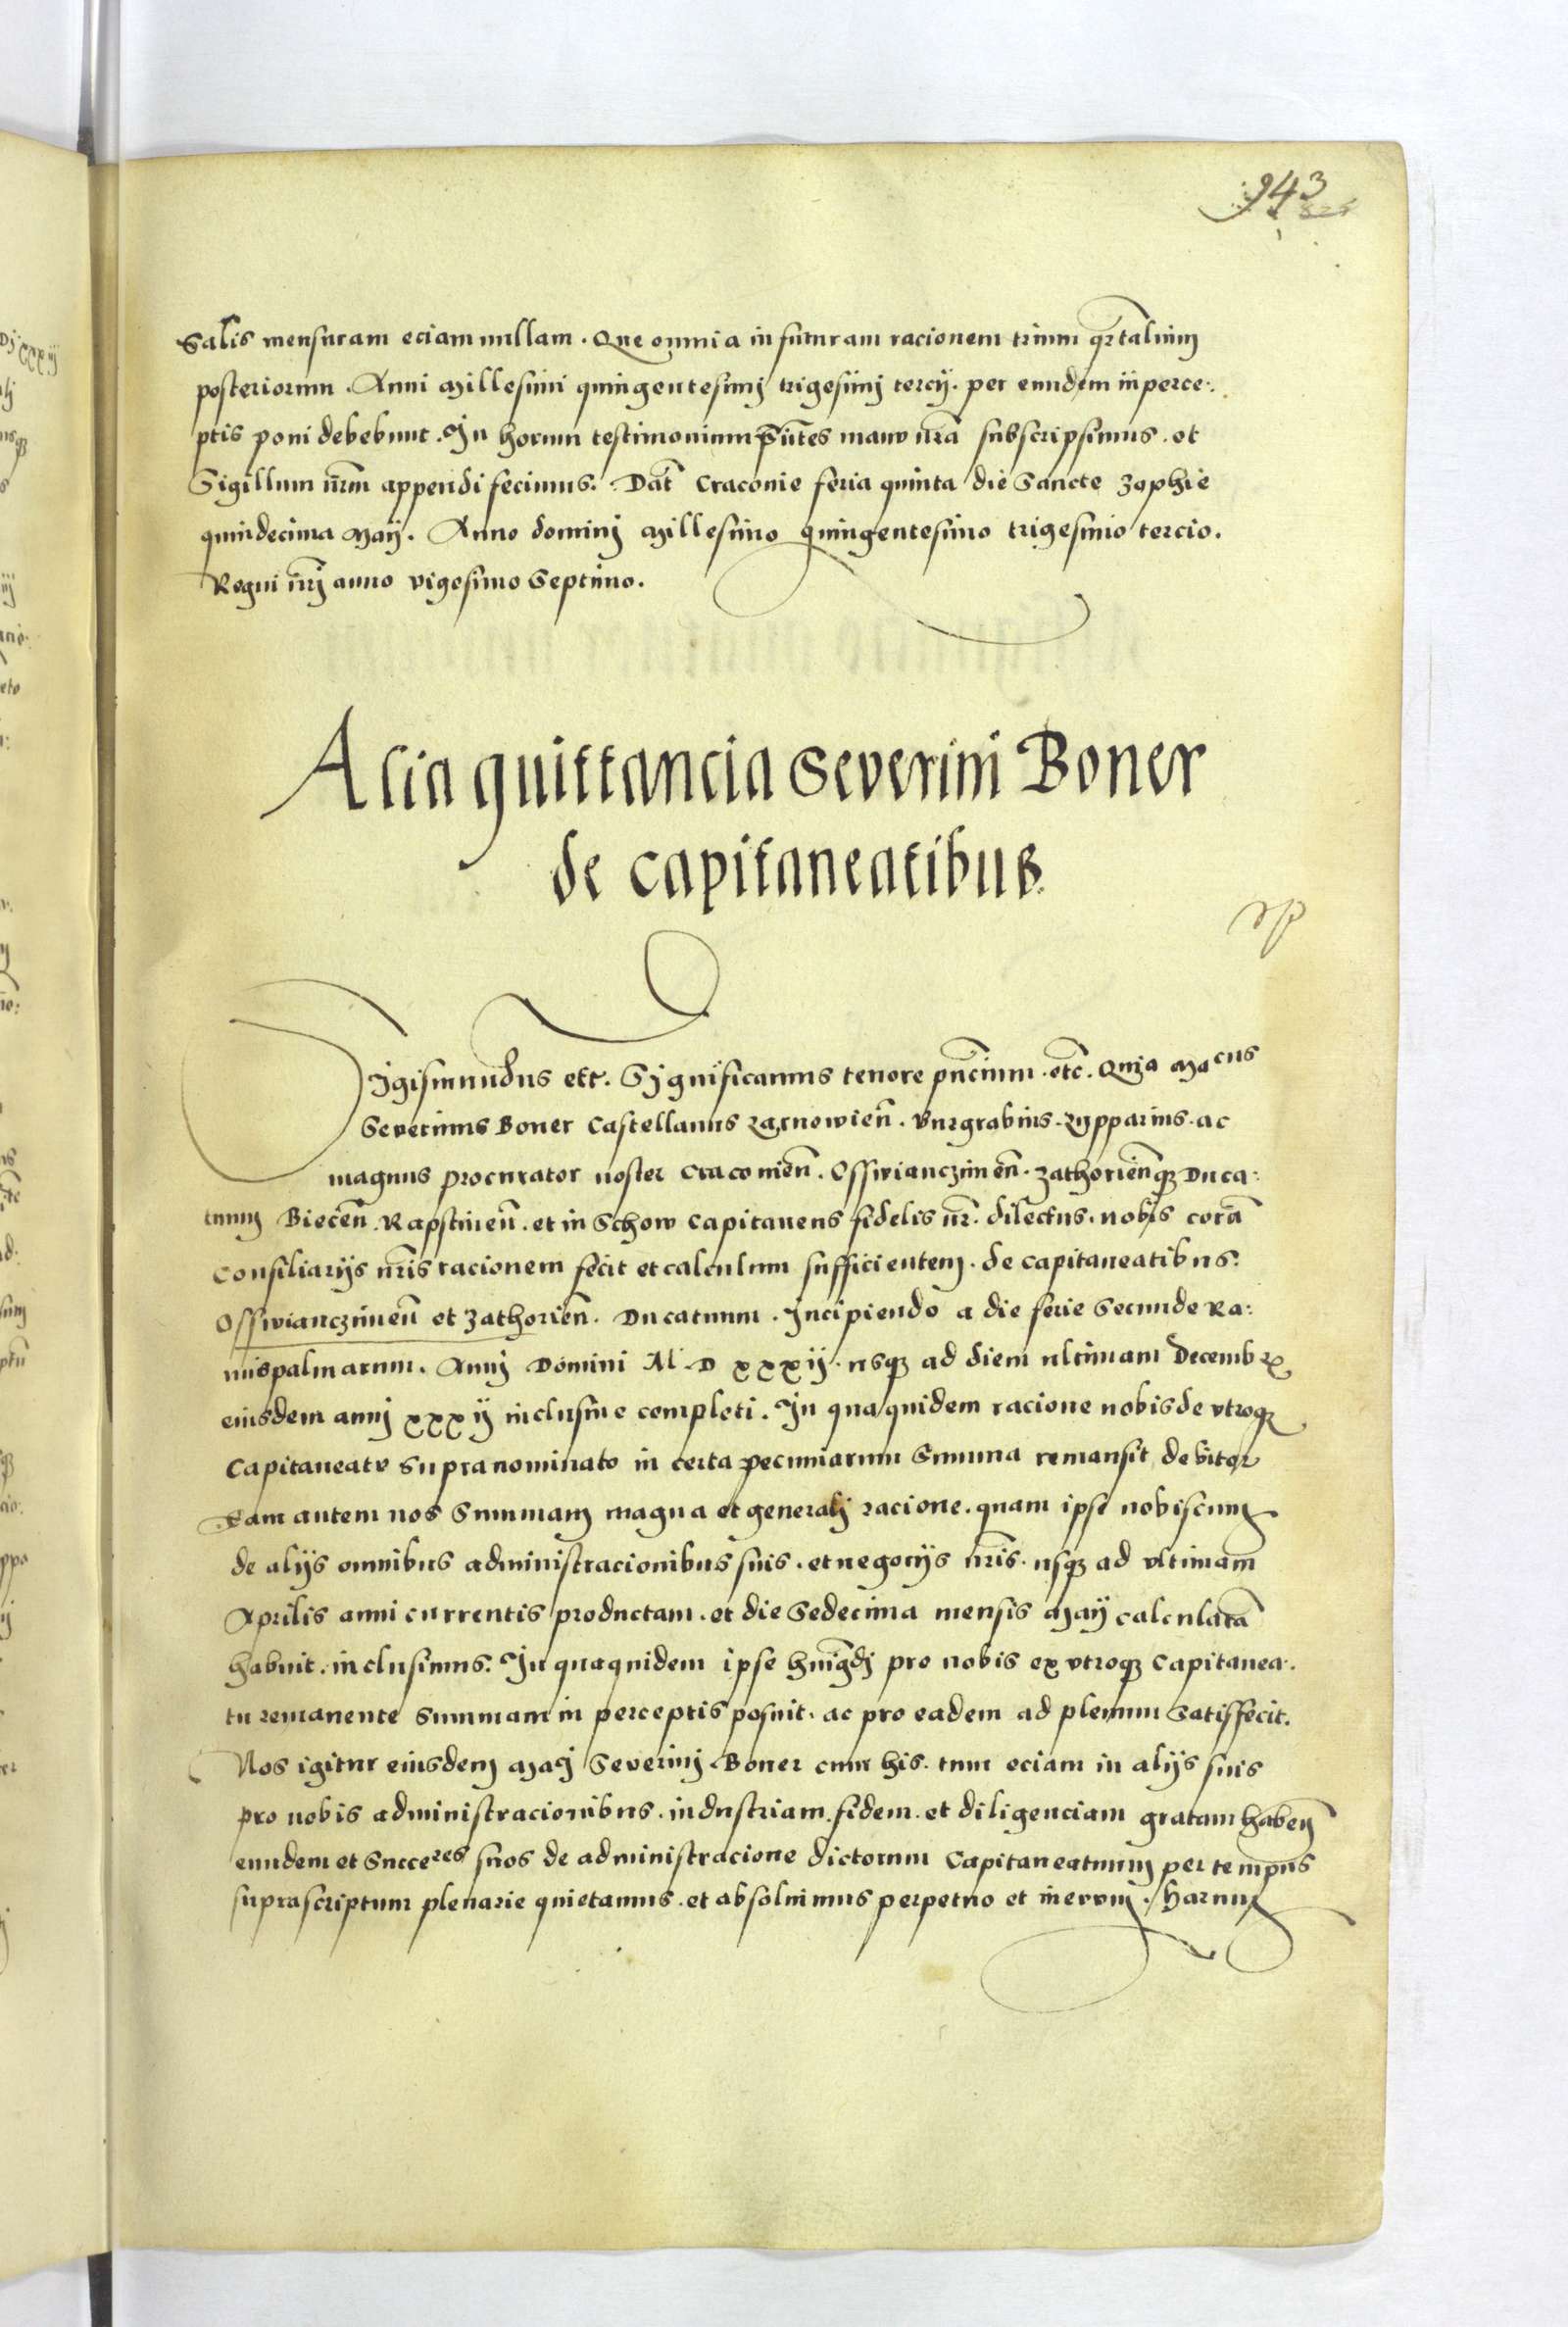 943
Salis mensuram eciam nullam. Que omnia in futuram racionem trium qrtaluum
posteriorum. Anni Millesimi quingentesimj trigesimj tercij. per eundem in perce:
ptis poni debebunt. In horum testimonium p̃ntes manu nrã subscripsimus. et
Sigillum nr̃m appendi fecimus. Dat̃ Craconie feria quinta die Sancte Zophie
quindecima Maij. Anno dominj Millesimo quingentesimo trigesimo tercio.
Regni nr̃j anno vigesimo Septimo.
Alia quittancia Severini Boner
de capitaneatibus.
Sigismundus etc. Significamus tenore pn̄cium. etc. Quia Macus
Severinus Boner Castellanus Zarnowien̄. Burgrabius. Zupparius. ac
magnus procurator noster Cracovien̄. Osswianczimen̄. Zathorien̄q₃ Duca:
tuum Biecen̄. Rapstinen̄. et in Schow Capitaneus fidelis nr̄. dilectus. nobis corã
Consiliarijs nr̄is racionem fecit et calculum sufficientem. de capitaneatibus.
Osswianczimen̄ et Zathorien̄. Ducatuum. Incipiendo a die ferie Secunde Ra:
mispalmarum. Annj Domini M. D xxxij. usq₃ ad diem ultimam Decembr̄
eiusdem annj xxxij inclusive completi. In qua quidem racione nobis de vtroq₃
Capitaneatu Supranominato in certa pecuniarum Summa remansit debitor
Eam autem nos Summam magna et generalj racione. quam ipse nobiscum
de alijs omnibus administracionibus suis. et negocijs nr̄is. usq₃ ad vltimam
Aprilis anni currentis productam. et die Sedecima mensis Maij calculatã
habuit. inclusimus. In qua quidem ipse hmōdj pro nobis ex vtroq₃ Capitanea:
tu remanente Summam in perceptis posuit. ac pro eadem ad plenum Satisfecit.
Nos igitur eiusdem Macj Severinj Boner cum his. tum eciam in alijs suis
pro nobis administracionibus. industriam. fidem. et diligenciam gratam haben̄
eundem et Succeres suos de administracione dictorum Capitaneatuum per tempus
suprascriptum plenarie quietamus. et absolvimus perpetuo et in evum. Harum